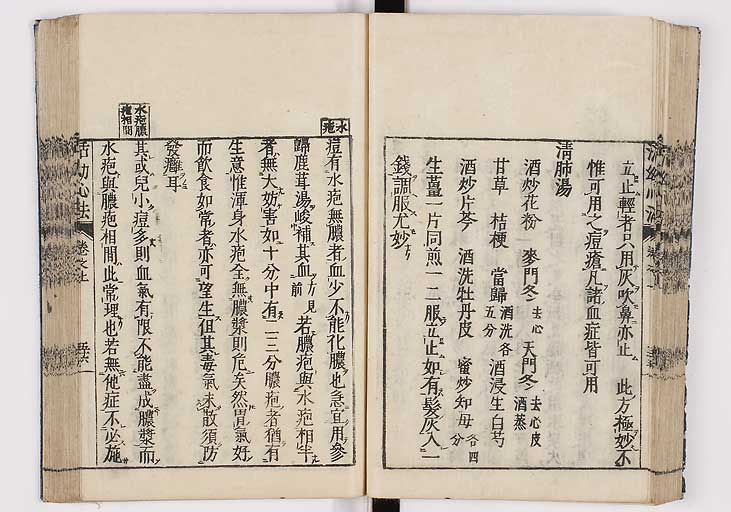 立止輕者只用灰吹鼻亦止 此方極妙不
惟可用之痘瘡凡諸血症皆可用
清肺湯
酒炒花粉 麥門冬去心 天門冬去心皮酒蒸
甘草 桔梗 當歸酒洗各五分 酒浸生白芍
酒炒片芩 酒洗牡丹皮 蜜炒知母各四分
生薑一片同煎一二服立止如有髮灰入一
錢調服尤妙
水疱
痘有水疱無膿者血少不能化膿也急宜用參
歸鹿茸湯峻補其血方見前 若膿疱與水疱相半
者無大妨害如十分中有二三分膿疱者猶有
生意惟渾身水疱全無膿漿則危矣然胃氣好
而飲食如常者亦可望生但其毒氣未散須防
發癰耳
水疱膿疱相間
其或兒小痘多則血氣有限不能盡成膿漿而
水疱與膿疱相間此常理也若無他症不必施
活幼心法 卷之上 五十六